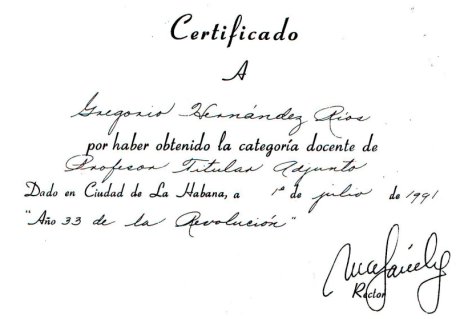 Certificado
A
Gregorio Hernández Ríos
por haber obtenido la categoría docente de
Profesor Titular Adjunto
Dado en Ciudad de La Habana, a 1º de julio de 1991
"Año 33 de la Revolución"
Rector